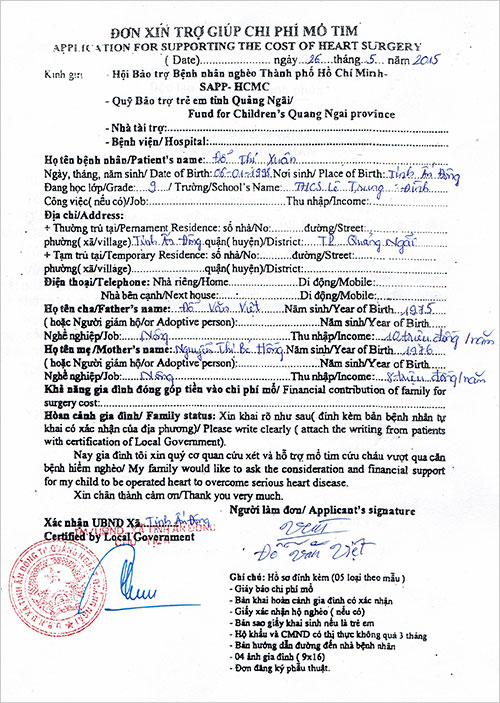 ĐƠN XIN TRỢ GIÚP CHI PHÍ MỔ TIM
APPLICATION FOR SUPPORTING THE COST OF HEART SURGERY
( Date)........................ ngày..26....tháng...5...năm 2015
Kính gửi - Hội Bảo trợ Bệnh nhân nghèo Thành phố Hồ Chí Minh-
SAPP- HCMC
- Quỹ Bảo trợ trẻ em tỉnh Quảng Ngãi/
Fund for Children's Quang Ngai province
- Nhà tài trợ:
- Bệnh viện/ Hospital:
Họ tên bệnh nhân/Patient's name: Đỗ Thị Xuân
Ngày, tháng, năm sinh/ Date of Birth: 06-01-1998. Nơi sinh/ Place of Birth: Tịnh Ấn Đông
Đang học lớp/Grade: 9 / Trường/School's Name: THCS Lê Trung Đình
Công việc( nếu có)/Job: Thu nhập/Income:
Địa chỉ/Address:
+ Thường trú tại/Pernament Residence: số nhà/No: đường/Street:
phường( xã/village). Tịnh Ấn Đông. quận( huyện)/District: TP Quảng Ngãi
+ Tạm trú tại/Temporary Residence: số nhà/No: đường/Street:
phường( xã/village) quận( huyện)/District:
Điện thoại/Telephone: Nhà riêng/Home Di động/Mobile:
Nhà bên cạnh/Next house: Di động/Mobile:
Họ tên cha/Father's name: Đỗ Văn Việt Năm sinh/Year of Birth 1975
( hoặc Người giám hộ/or Adoptive person): Năm sinh/Year of Birth
Nghề nghiệp/Job: Nông Thu nhập/Income: 10 triệu đồng/năm
Họ tên mẹ/Mother's name: Nguyễn Thị Bé Hồng. Năm sinh/Year of Birth 1976
( hoặc Người giám hộ/or Adoptive person): Năm sinh/Year of Birth
Nghề nghiệp/Job: Nông Thu nhập/Income: 8 triệu đồng/năm
Khả năng gia đình đóng góp tiền vào chi phí mổ/ Financial contribution of family for
surgery cost:
Hoàn cảnh gia đình/ Family status: Xin khai rõ như sau( đính kèm bản bệnh nhân tự
khai có xác nhận của địa phương)/ Please write clearly ( attach the writing from patients
with certification of Local Government).
Nay gia đình tôi xin quý cơ quan cứu xét và hỗ trợ mổ tim cứu cháu vượt qua căn
bệnh hiểm nghèo/ My family would like to ask the consideration and financial support
for my child to be operated heart to overcome serious heart disease.
Xin chân thành cảm ơn/Thank you very much.
Người làm đơn/ Applicant's signature
Xác nhận UBND Xã. Tịnh Ấn Đông
Certified by Local Government
Việt
Đỗ Văn Việt
Ghi chú: Hồ sơ đính kèm (05 loại theo mẫu )
- Giấy báo chi phí mổ
- Bản khai hoàn cảnh gia đình có xác nhận
- Giấy xác nhận hộ nghèo ( nếu có)
- Bản sao giấy khai sinh nếu là trẻ em
- Hộ khẩu và CMND có thị thực không quá 3 tháng
- Bản hướng dẫn đường đến nhà bệnh nhân
- 04 ảnh gia đình ( 9x16)
- Đơn đăng ký phẫu thuật.